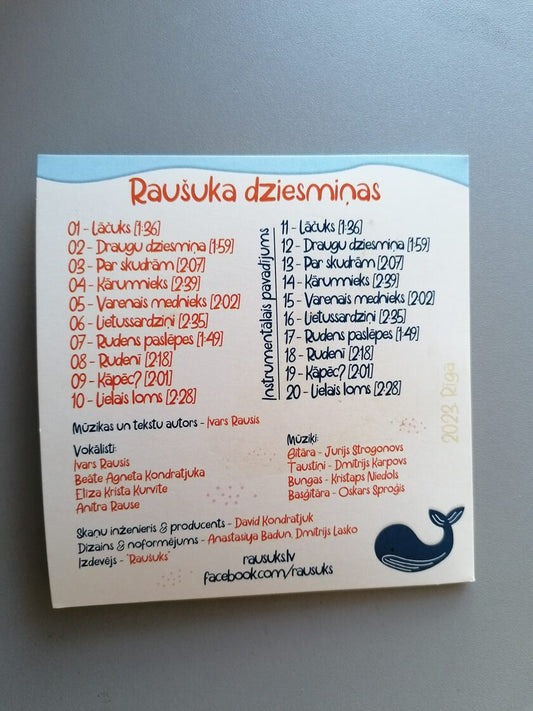 Raušuka dziesmiņas
01 - Lāčuks [1:36]
02 - Draugu dziesmiņa [1:59]
03 - Par skudrām [2:07]
04 - Kārumnieks [2:39]
05 - Varenais mednieks [2:02]
06 - Lietussardziņi [2:35]
07 - Rudens paslēpes [1:49]
08 - Rudenī [2:18]
09 - Kāpēc? [2:01]
10 - Lielais loms [2:28]
Instrumentālais pavadījums
11 - Lāčuks [1:36]
12 - Draugu dziesmiņa [1:59]
13 - Par skudrām [2:07]
14 - Kārumnieks [2:39]
15 - Varenais mednieks [2:02]
16 - Lietussardziņi [2:35]
17 - Rudens paslēpes [1:49]
18 - Rudenī [2:18]
19 - Kāpēc? [2:01]
20 - Lielais loms [2:28]
2023 Rīga
Mūzikas un tekstu autors - Ivars Rausis
Vokālisti:
Ivars Rausis
Beāte Agneta Kondratjuka
Elīza Krista Kurvite
Anitra Rause
Mūziķi:
Ģitāra - Jurijs Strogonovs
Taustiņi - Dmitrijs Karpovs
Bungas - Kristaps Niedols
Basģitāra - Oskars Sproģis
Skaņu inženieris & producents - David Kondratjuk
Dizains & noformējums - Anastasiya Badun, Dmitrijs Lasko
Izdevējs - "Raušuks"
rausuks.lv
facebook.com/rausuks